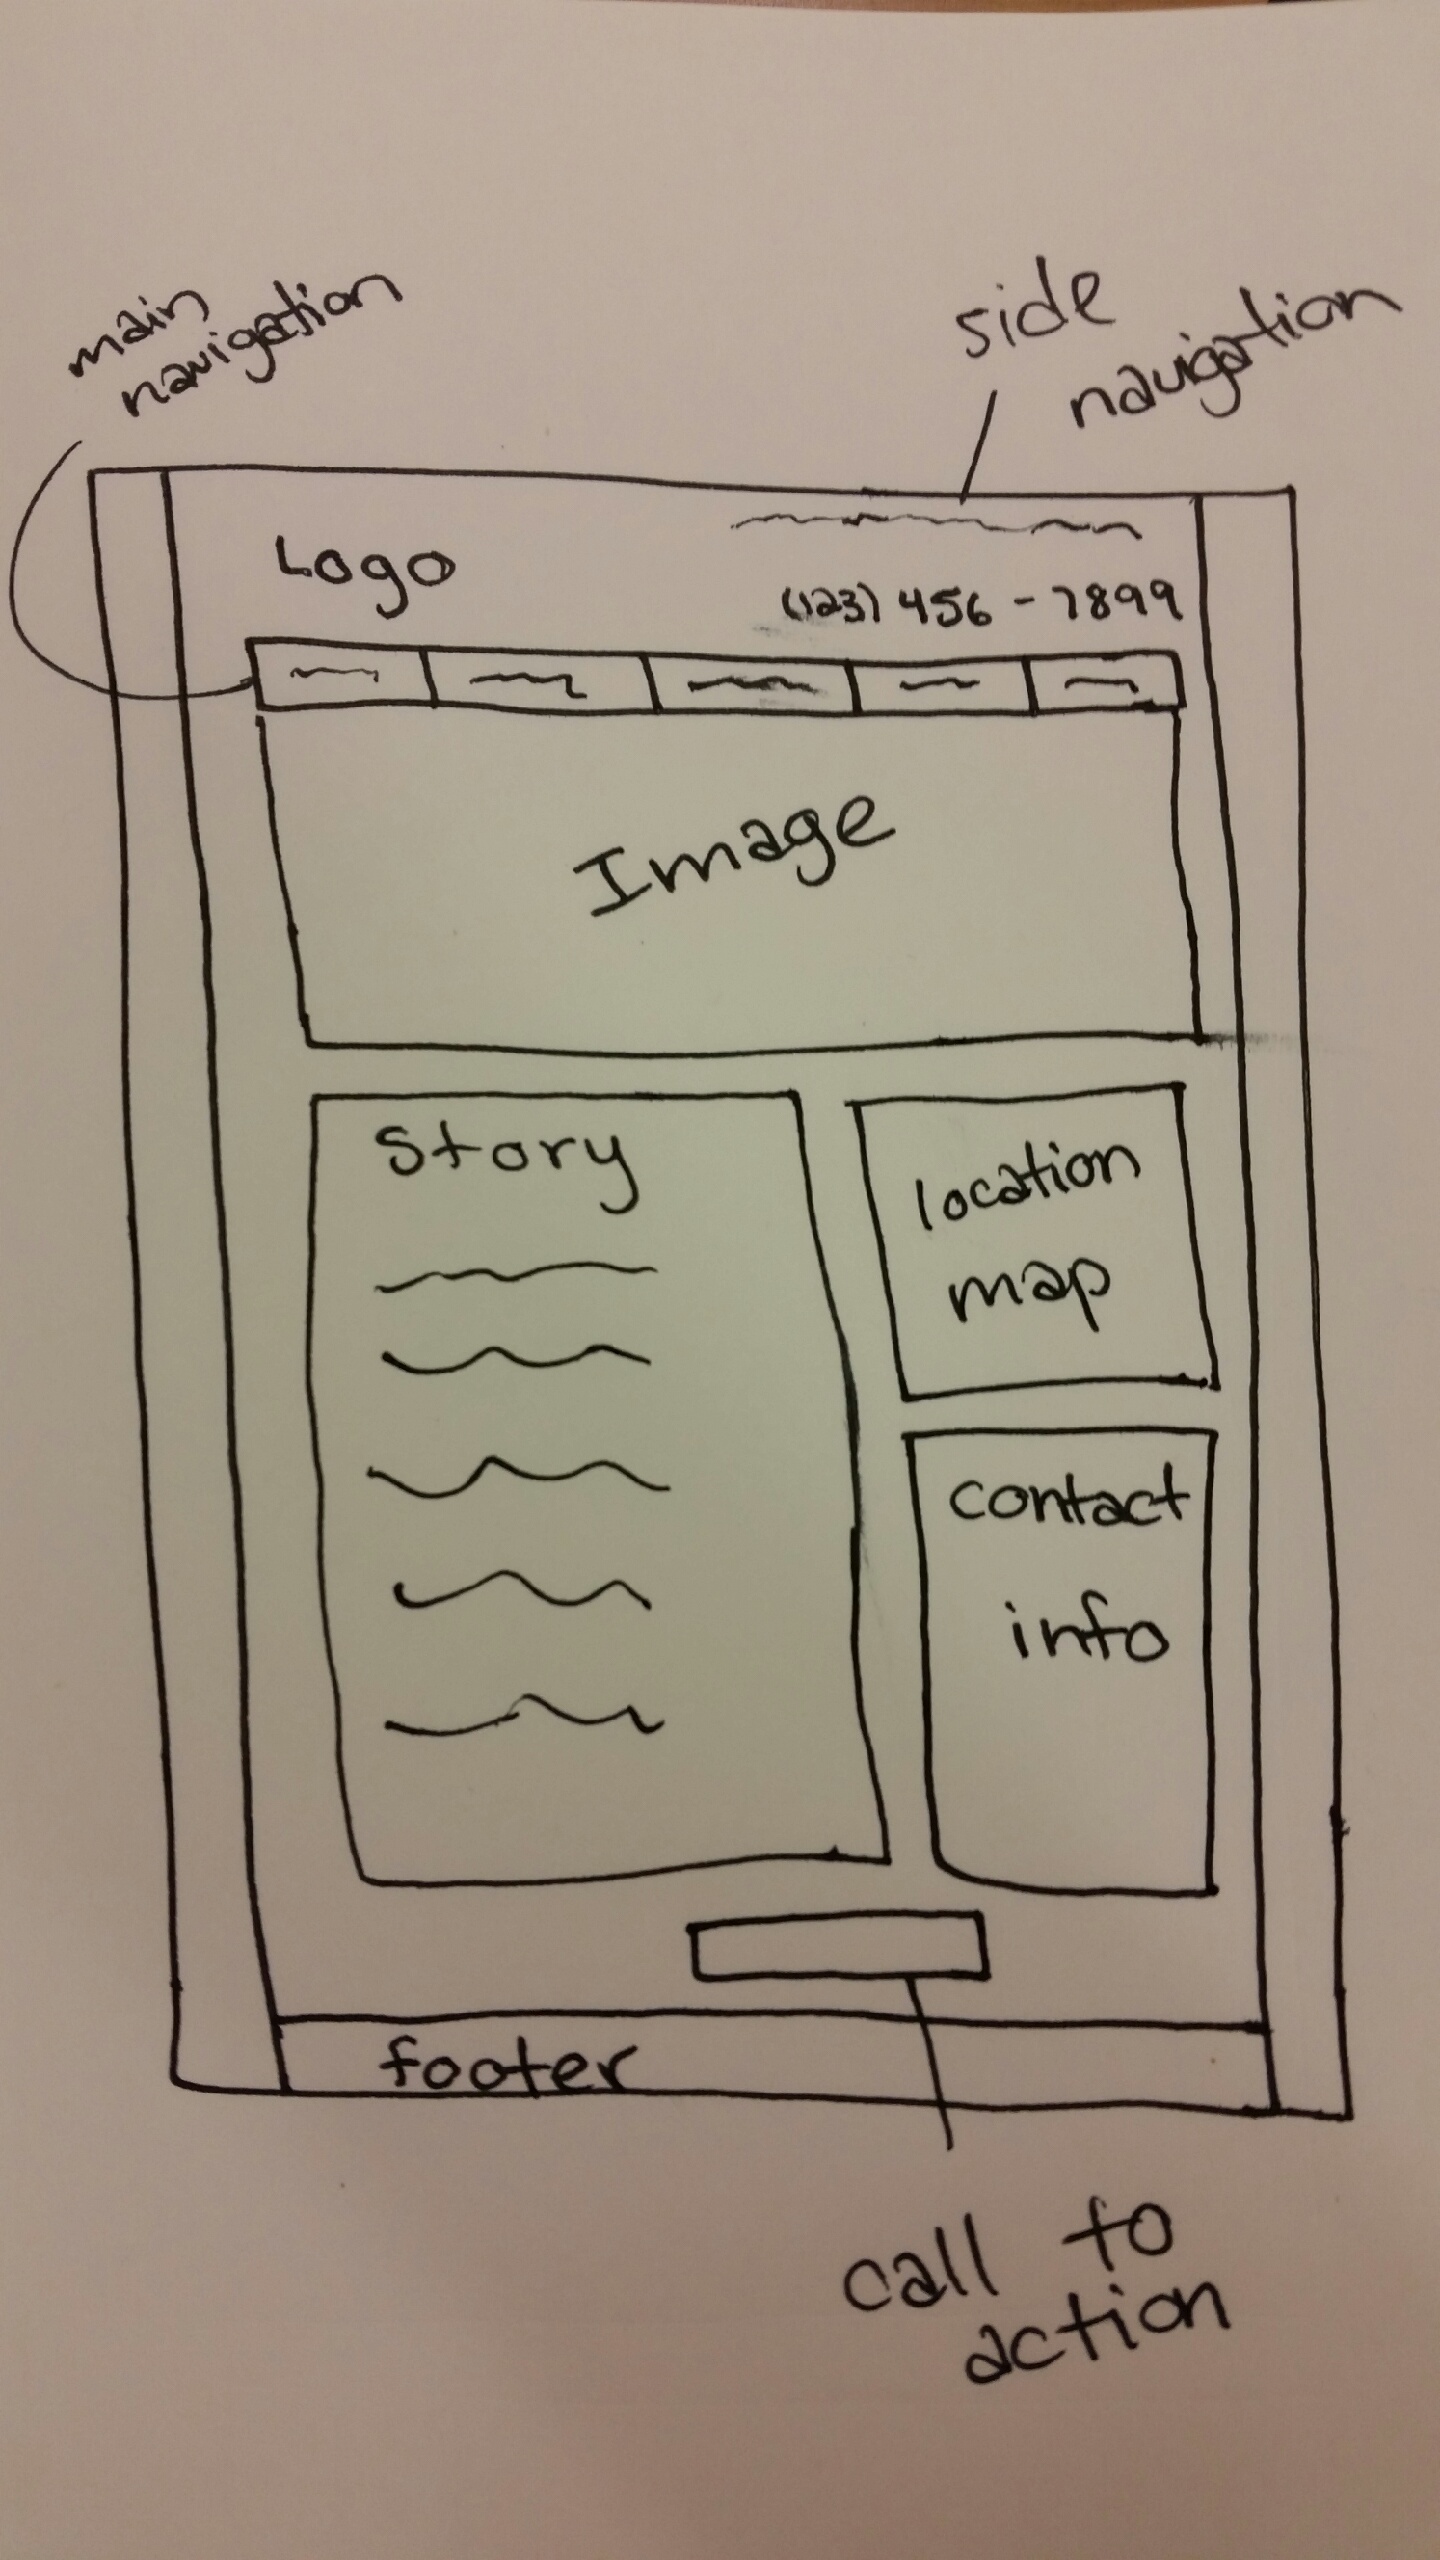 main
navigation
side
navigation
Logo
(123) 456-7899
Image
Story
location
map
contact
info
footer
call to
action